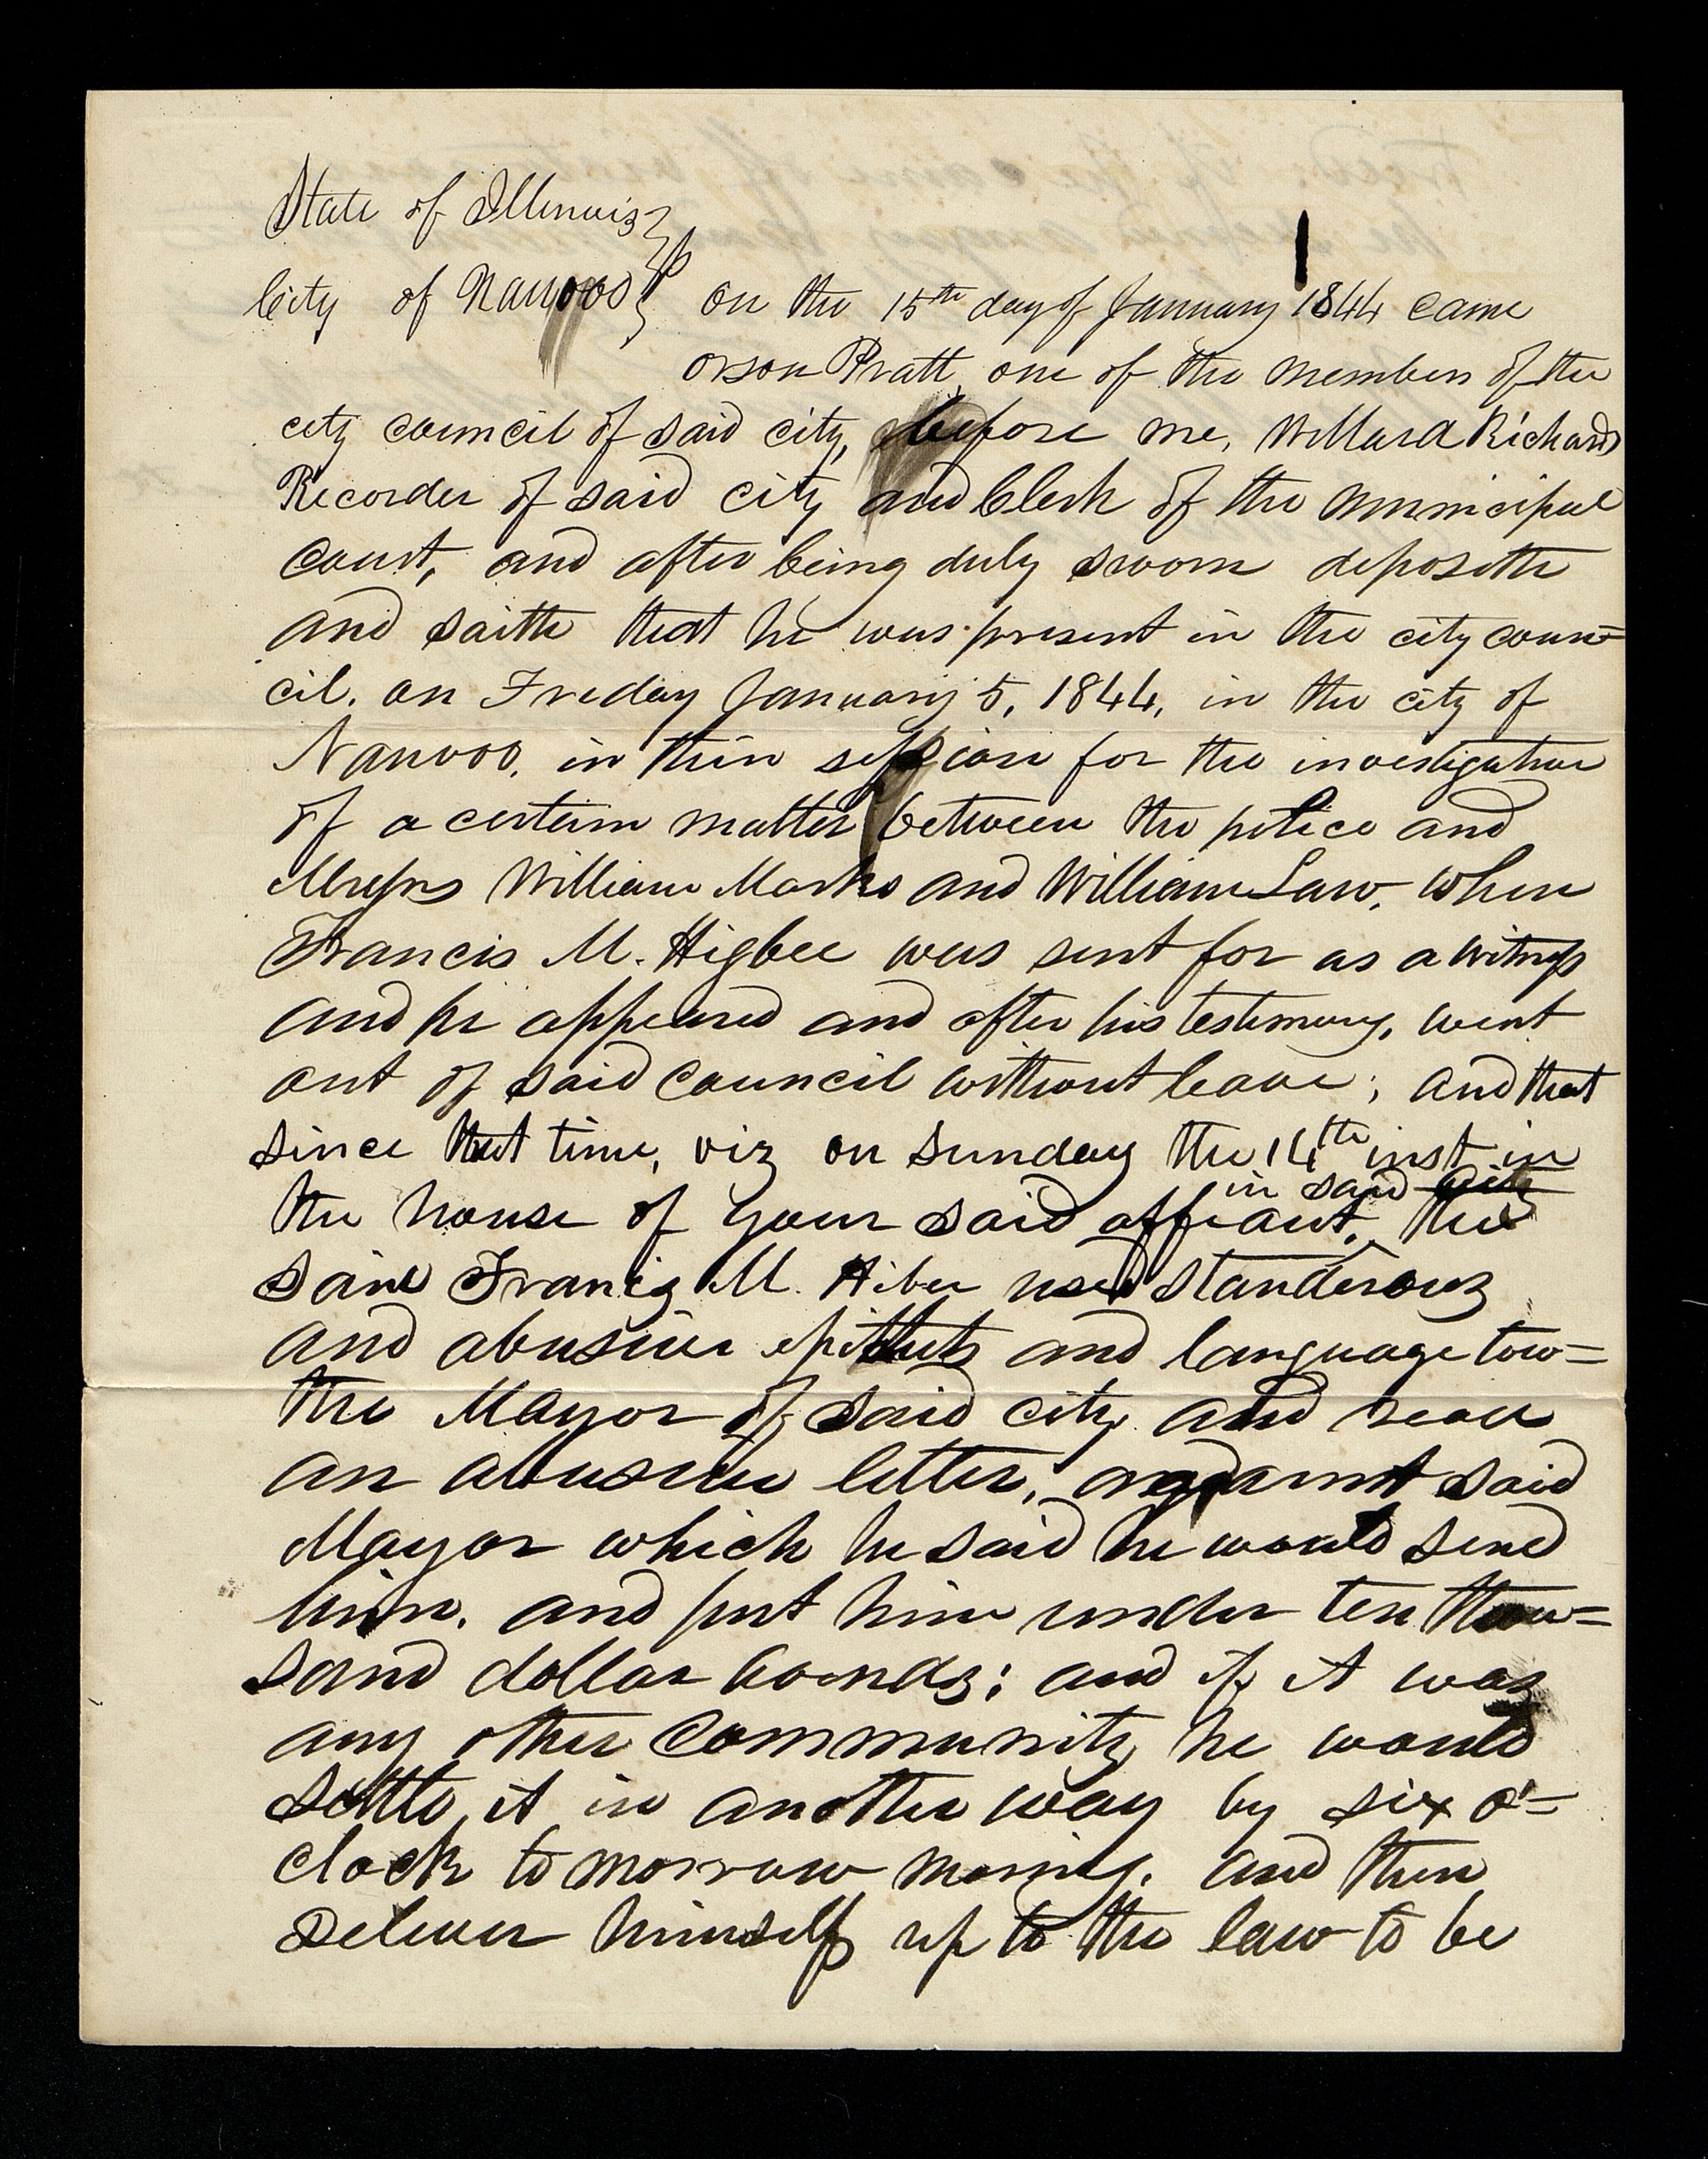 State of Illinois }
City of Nauvoo } ss on the 15th day of January 1844 came
orson Pratt, one of the members of the
city council of said city, before me, Willard Richards
Recorder of said city and Clerk of the municipal
Court, and after being duly sworn deposeth
and saith that he was present in the city coun=
cil. on Friday January 5, 1844, in the city of
Nauvoo. in their session for the investigation
of a certain matter between the police and
Messrs William Marks and William Law, when
Francis M. Higbee was sent for as a witness
and he appeared and after his testimony, went
out of said council without leave; and that
since that time, viz on sunday the 14th inst in
in said city
the house of your said affiant. the
said Francis M. Hibee used slanderous
and abusive epithets and language tow=
the Mayor of said city and read
an abusive letter, against said
Mayor which he said he would send
him. and put him under ten thou=
sand dollar bonds; and if it was
any other community he would
settle it in another way by six o'=
clock tomorrow morning. and then
deliver himself up to the law to be